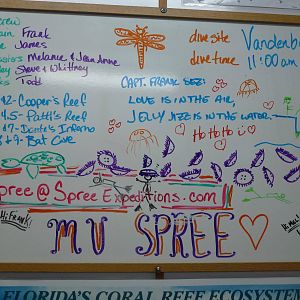 Frank
James
Melanie & Jean Anne
Steve & Whittney
Todd
dive site
dive time
11:00 am
CAPT. FRANK SEZ:
LOVE IS IN THE AIR,
JELLY JIZZ IS IN THE WATER
Ho Ho Ho
Cooper's Reef
Patti's Reef
Dante's Inferno
Bat Cave
pree@SpreeExpeditions.com
Hi Frank!
M V SPREE
FLORIDA'S CORAL REEF ECOSYSTEM